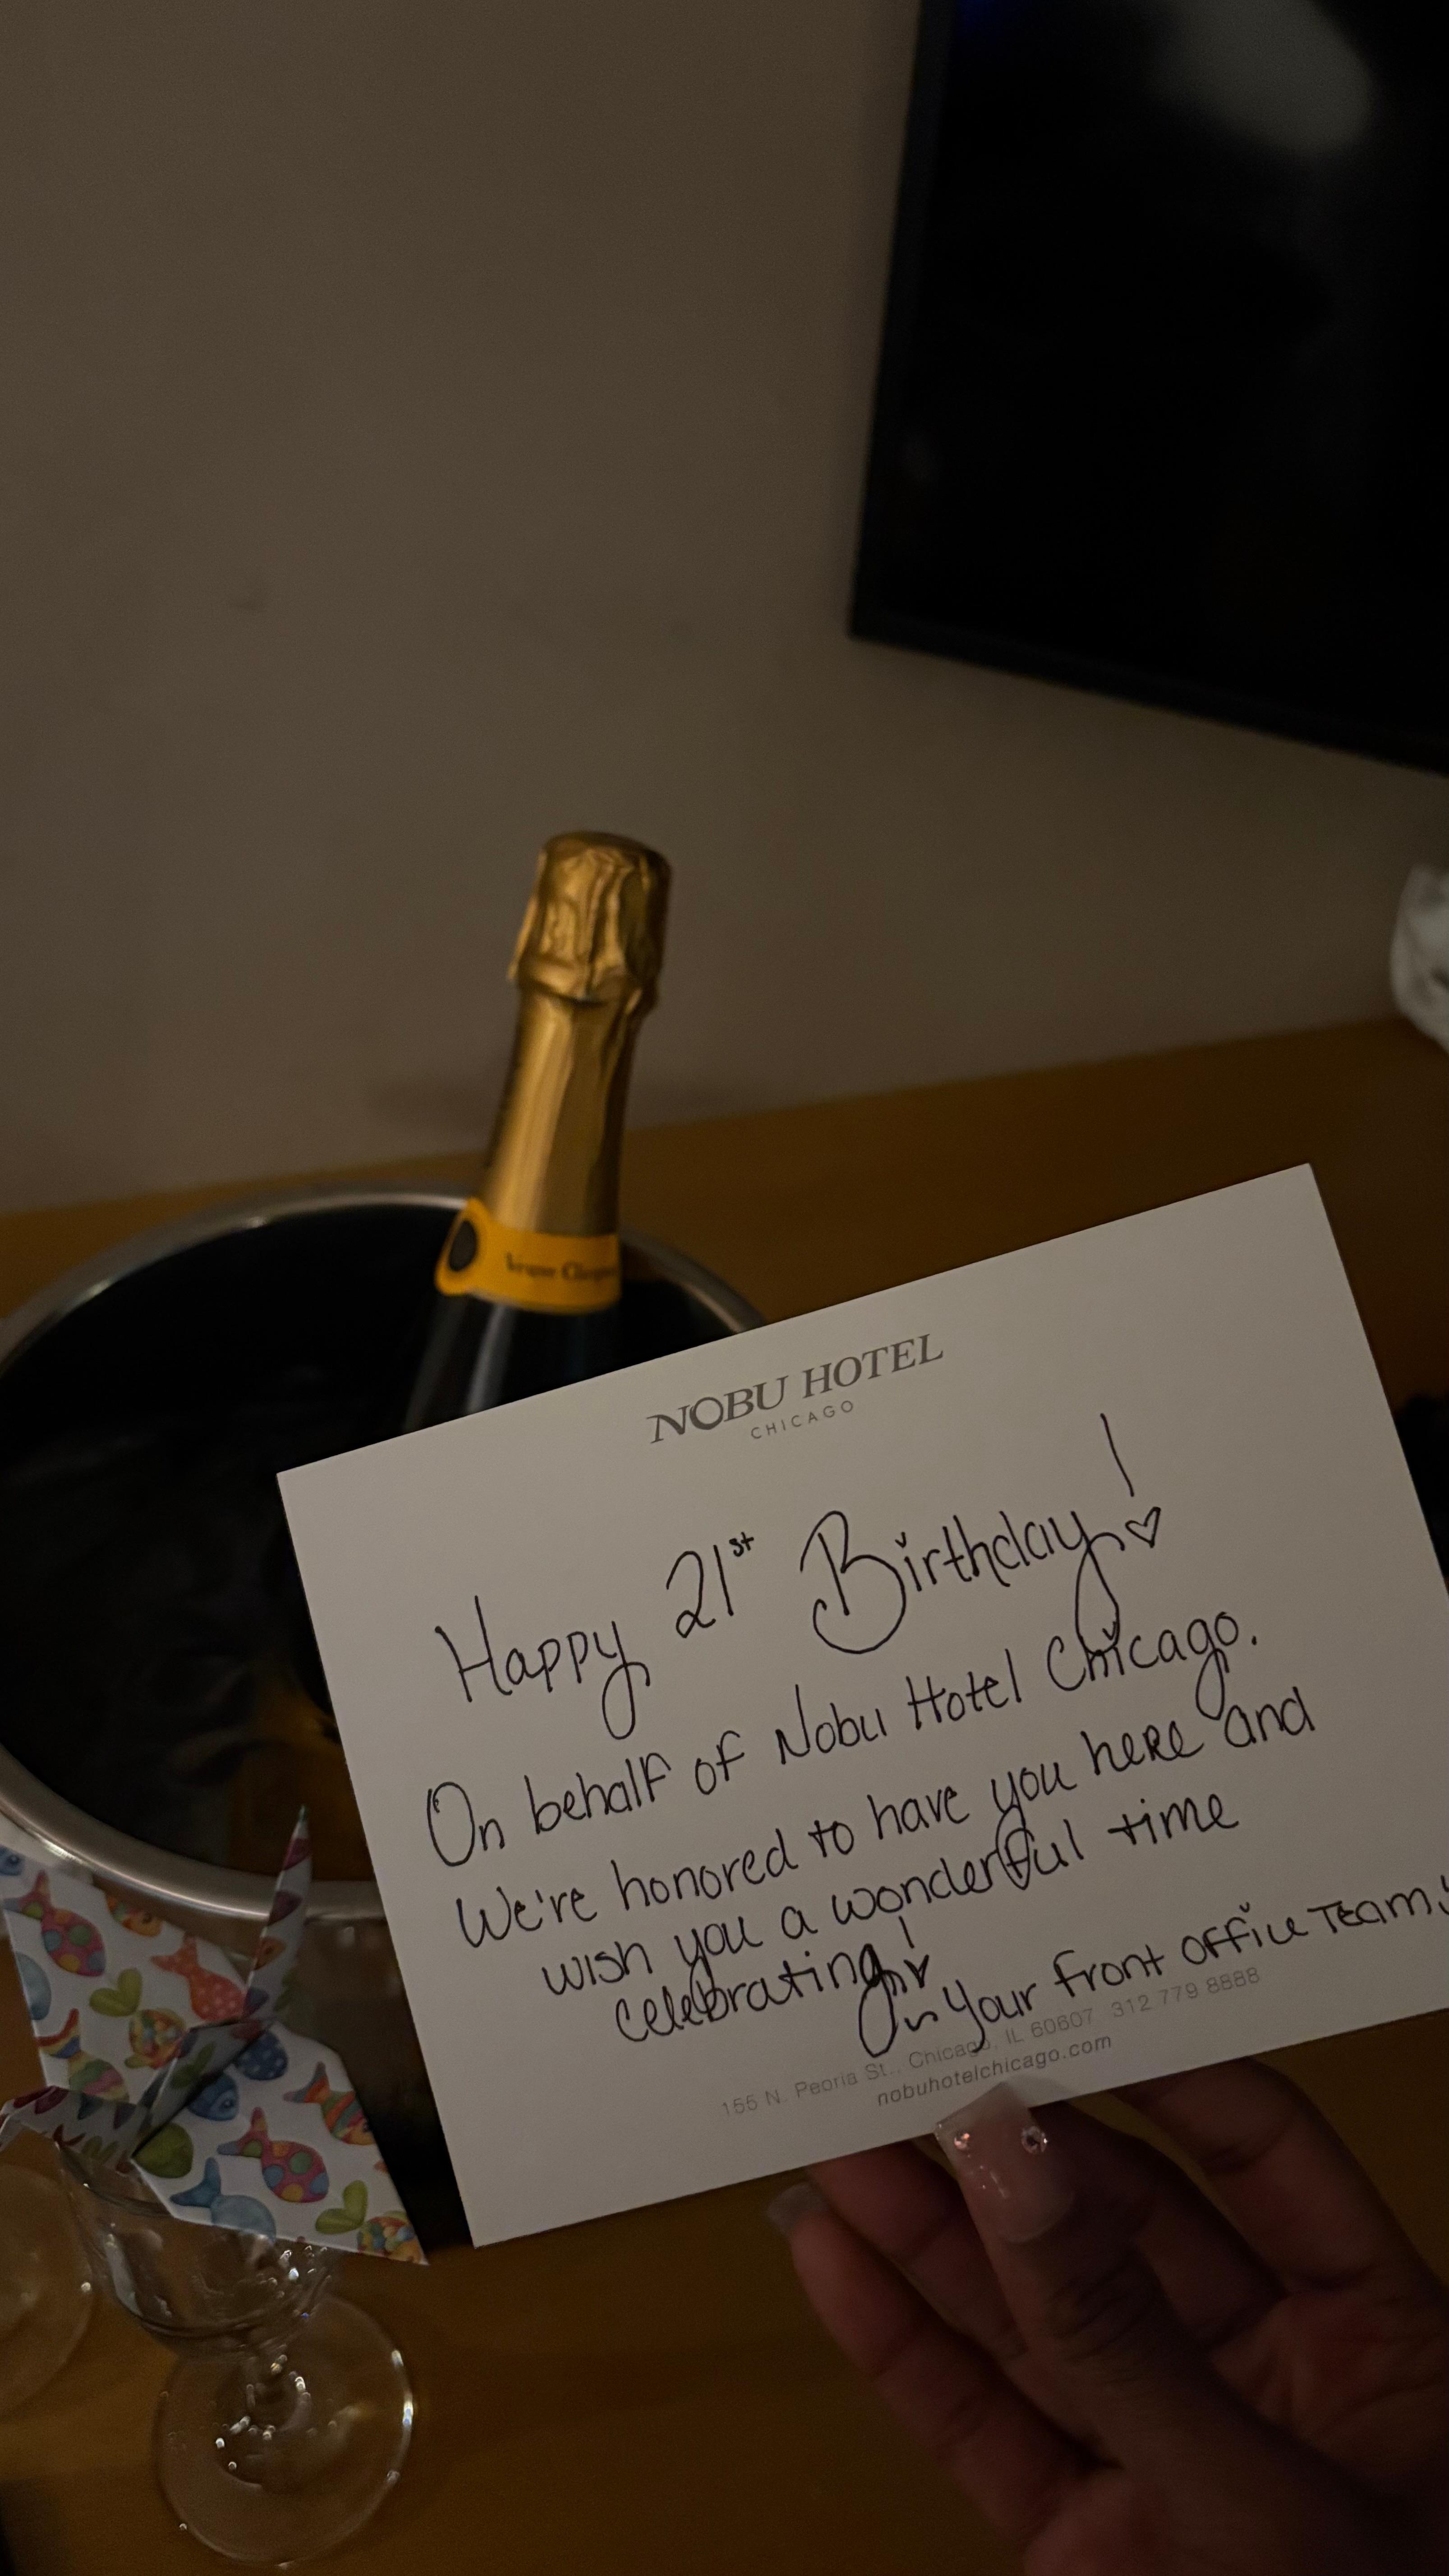 Veuve Clicquot
NOBU HOTEL
CHICAGO
Happy 21st Birthday!
On behalf of Nobu Hotel Chicago.
We're honored to have you here and
wish you a wonderful time
celebrating!
Your front office Team,
155 N. Peoria St., Chicago, IL 60607 312 779 8888
nobuhotelchicago.com